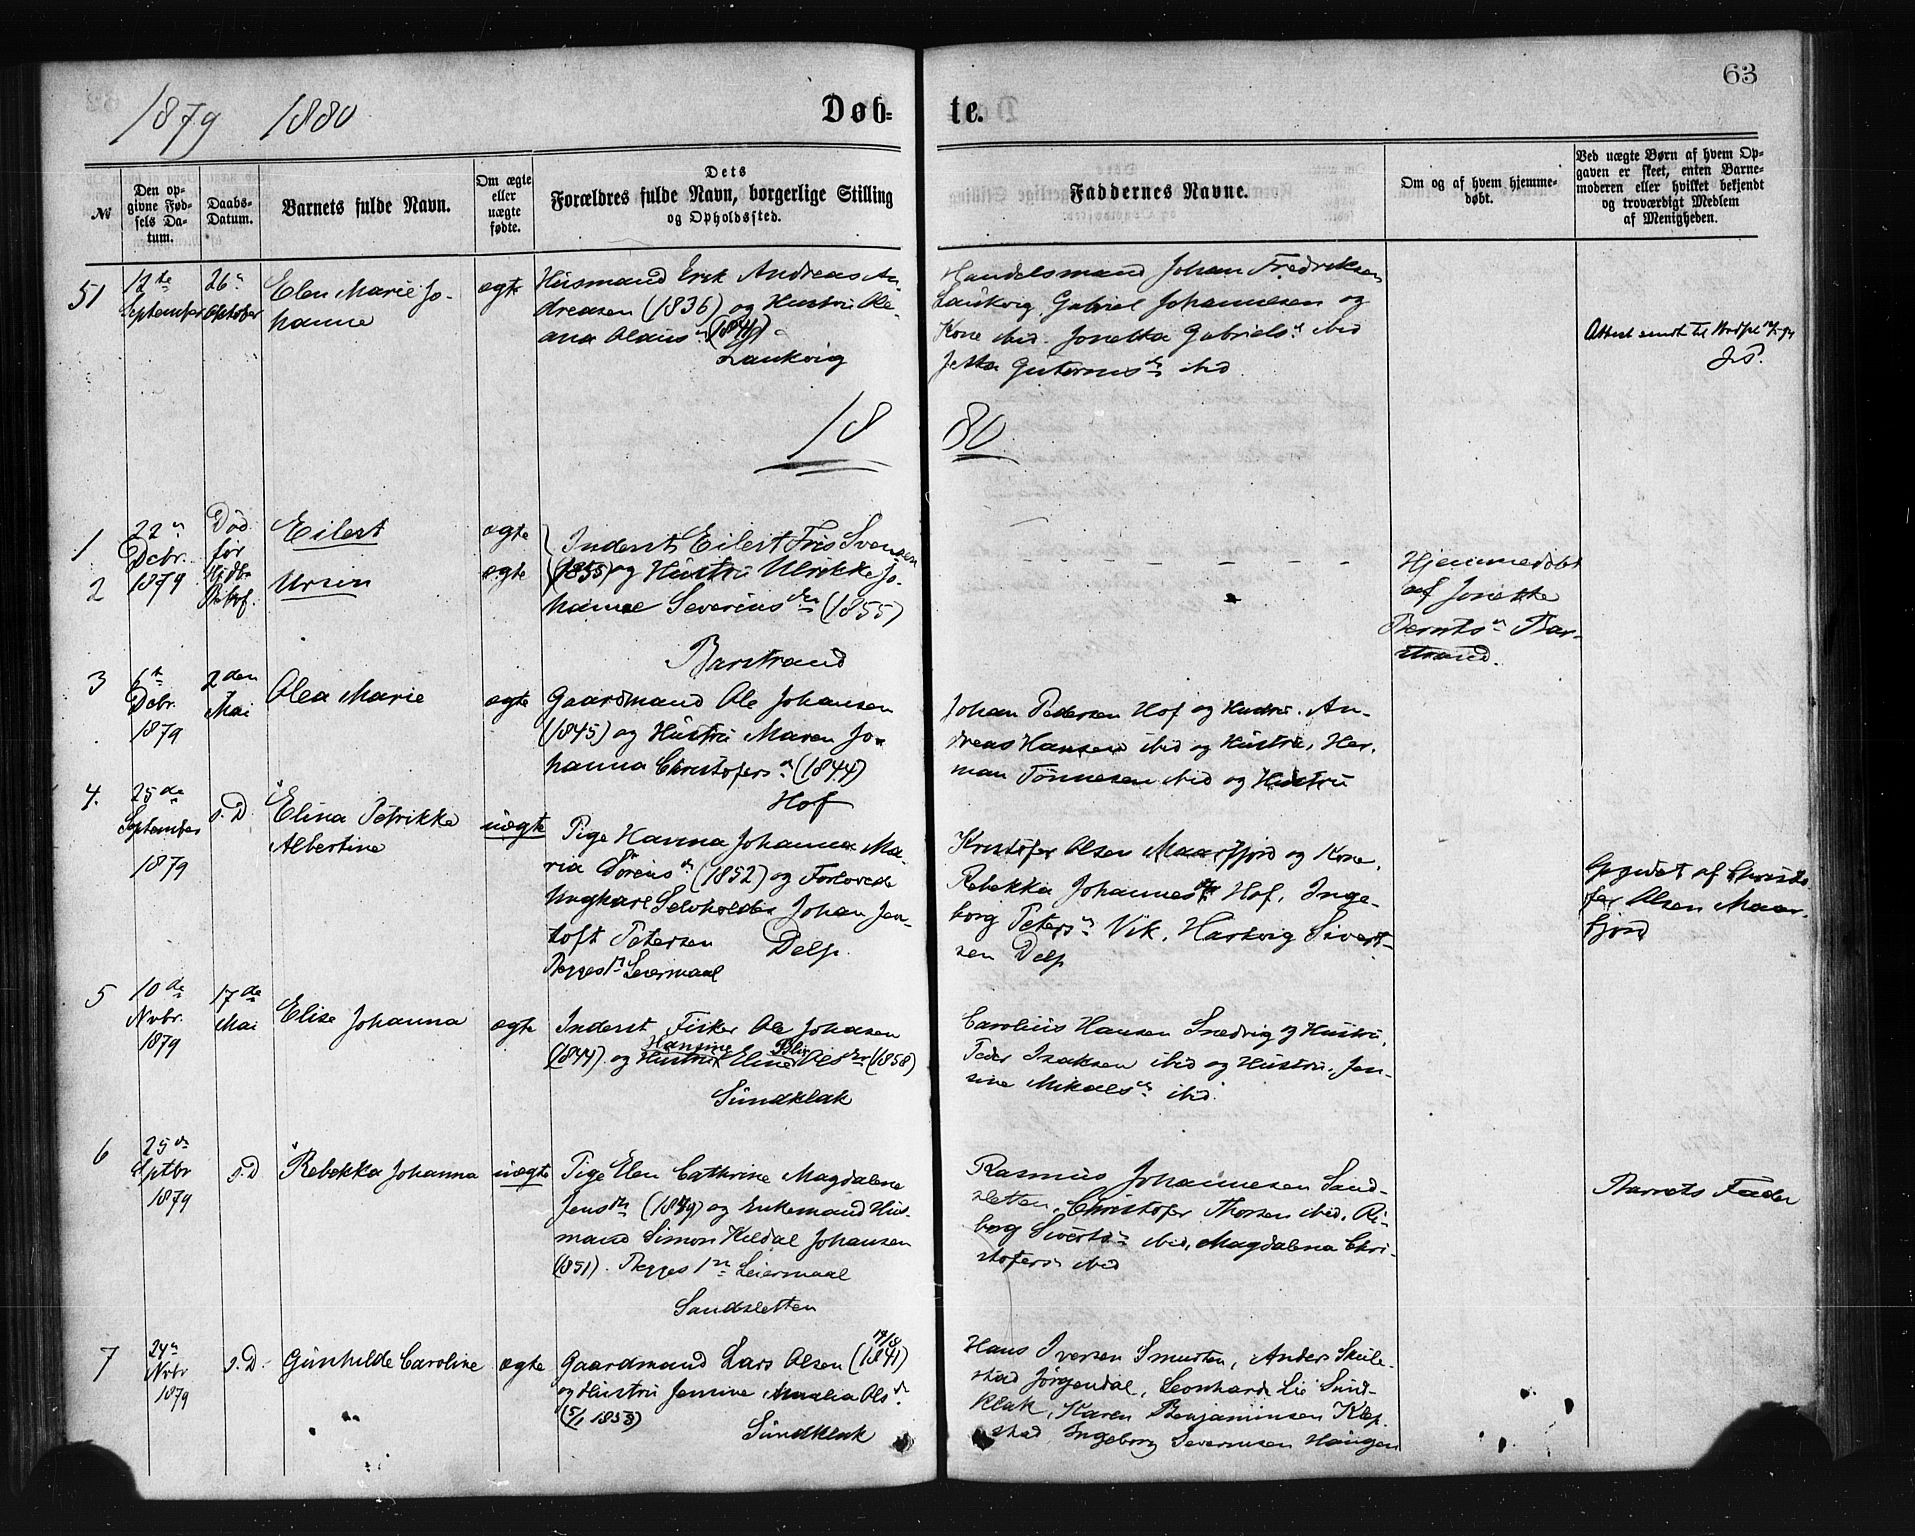 63
1879 1880 Døb= te.
№
Den op-
givne Fød-
sels Da-
tum.
Daabs-
Datum.
Barnets fulde Navn.
Om ægte
eller
uægte
fødte.
Dets
Forældres fulde Navn, borgerlige Stilling
og Opholdssted.
Faddernes Navne.
Om og af hvem hjemme-
døbt.
Ved uægte Børn af hvem Op-
gaven er skeet, enten Barne-
moderen eller hvilket bekjendt
og troværdigt Medlem
af Menigheden.
51
12te
September
26n
Oktober
Elen Marie Jo-
hanne
ægte
Husmand Erik Andreas An-
dreasen (1836) og Hustru Ole-
ana Olaus
Laukvig
Handelsmand Johan Fredriksen
Laukvig. Gabriel Johannesen og
Kone ibid. Jonetta Gabriels n ibid
Jetta Gutormsdn ibid
Attest sendt til
18 80
1
2
22n
Dcbr.
1879
Død
før
Eilert
Ursin
ægte
ægte
Inderst Eilert Fris Svendsen
(1855) og Hustru Ulrikke Jo-
hanne Severinsdn (1855)
Barstrand
Hjemmedøbt
af Jonette
Berntsn Bar-
strand.
3
6te
Dcbr.
1879
2den
Mai
Olea Marie
ægte
Gaardmand Ole Johansen
(1845) og Hustru Maren Jo-
hanna Christofersn (1844)
Hof
Johan Pedersen Hof og Hustru. An-
dreas Hansen ibid og Hustru, Her-
man Tönnesen ibid og Hustru
4.
25de
September
1879
s. D.
Elina Petrikke
Albertine
uægte
Pige Hanna Johanna Ma-
ria Sörensdn (1852) og Forlovede
Ungkarl Selvholdes Johan Jen-
toft Petersen Delp.
Begges 1n Leiermaal
Kristofer Olsen Maarfjord og Kone,
Rebekka Johannesdtr Hof, Inge-
borg Petersn Vik, Hartvig Sivert-
sen Delp
Opgivet af Christo-
fer Olsen Maar-
fjord
5
10de
Nvbr.
1879
17de
Mai
Elise Johanna
ægte
Inderst Fisker Ole Johansen
Hansine
(1844) og Hustru Eline Olsdn (1858)
Sundklak
Carolius Hansen Smedvig og Hustru,
Peder Isaksen ibid og Hustru. Jen-
sine Mikalsn ibid.
6
25de
Sptbr
1879
s. D
Rebekka Johanna
uægte
Pige Elen Cathrine Magdalena
Jensdn (1849) og Enkemand Hus-
mand Simon Kildal Johansen
(1851). Begges 1n Leiermaal
Sandsletten
Rasmus Johannesen Sand-
sletten, Christofer Thorsen ibid, Ri-
borg Sivertsn ibid, Magdalena Chri-
stofersn ibid
Barnets Fader
7
24n
Nvbr
1879
s. D.
Gunhilde Caroline
ægte
Gaardmand Lars Olsen (1841)
og Hustru Jensine Amalia Olsd.
(5/1 1853)
Sundklak
Hans Iversen Smorten, Anders Skule-
stad Jörgendal, Leonhard Lie Sund-
klak, Karen Benjaminsen Klep-
stad, Ingeborg Severinsen Haugen